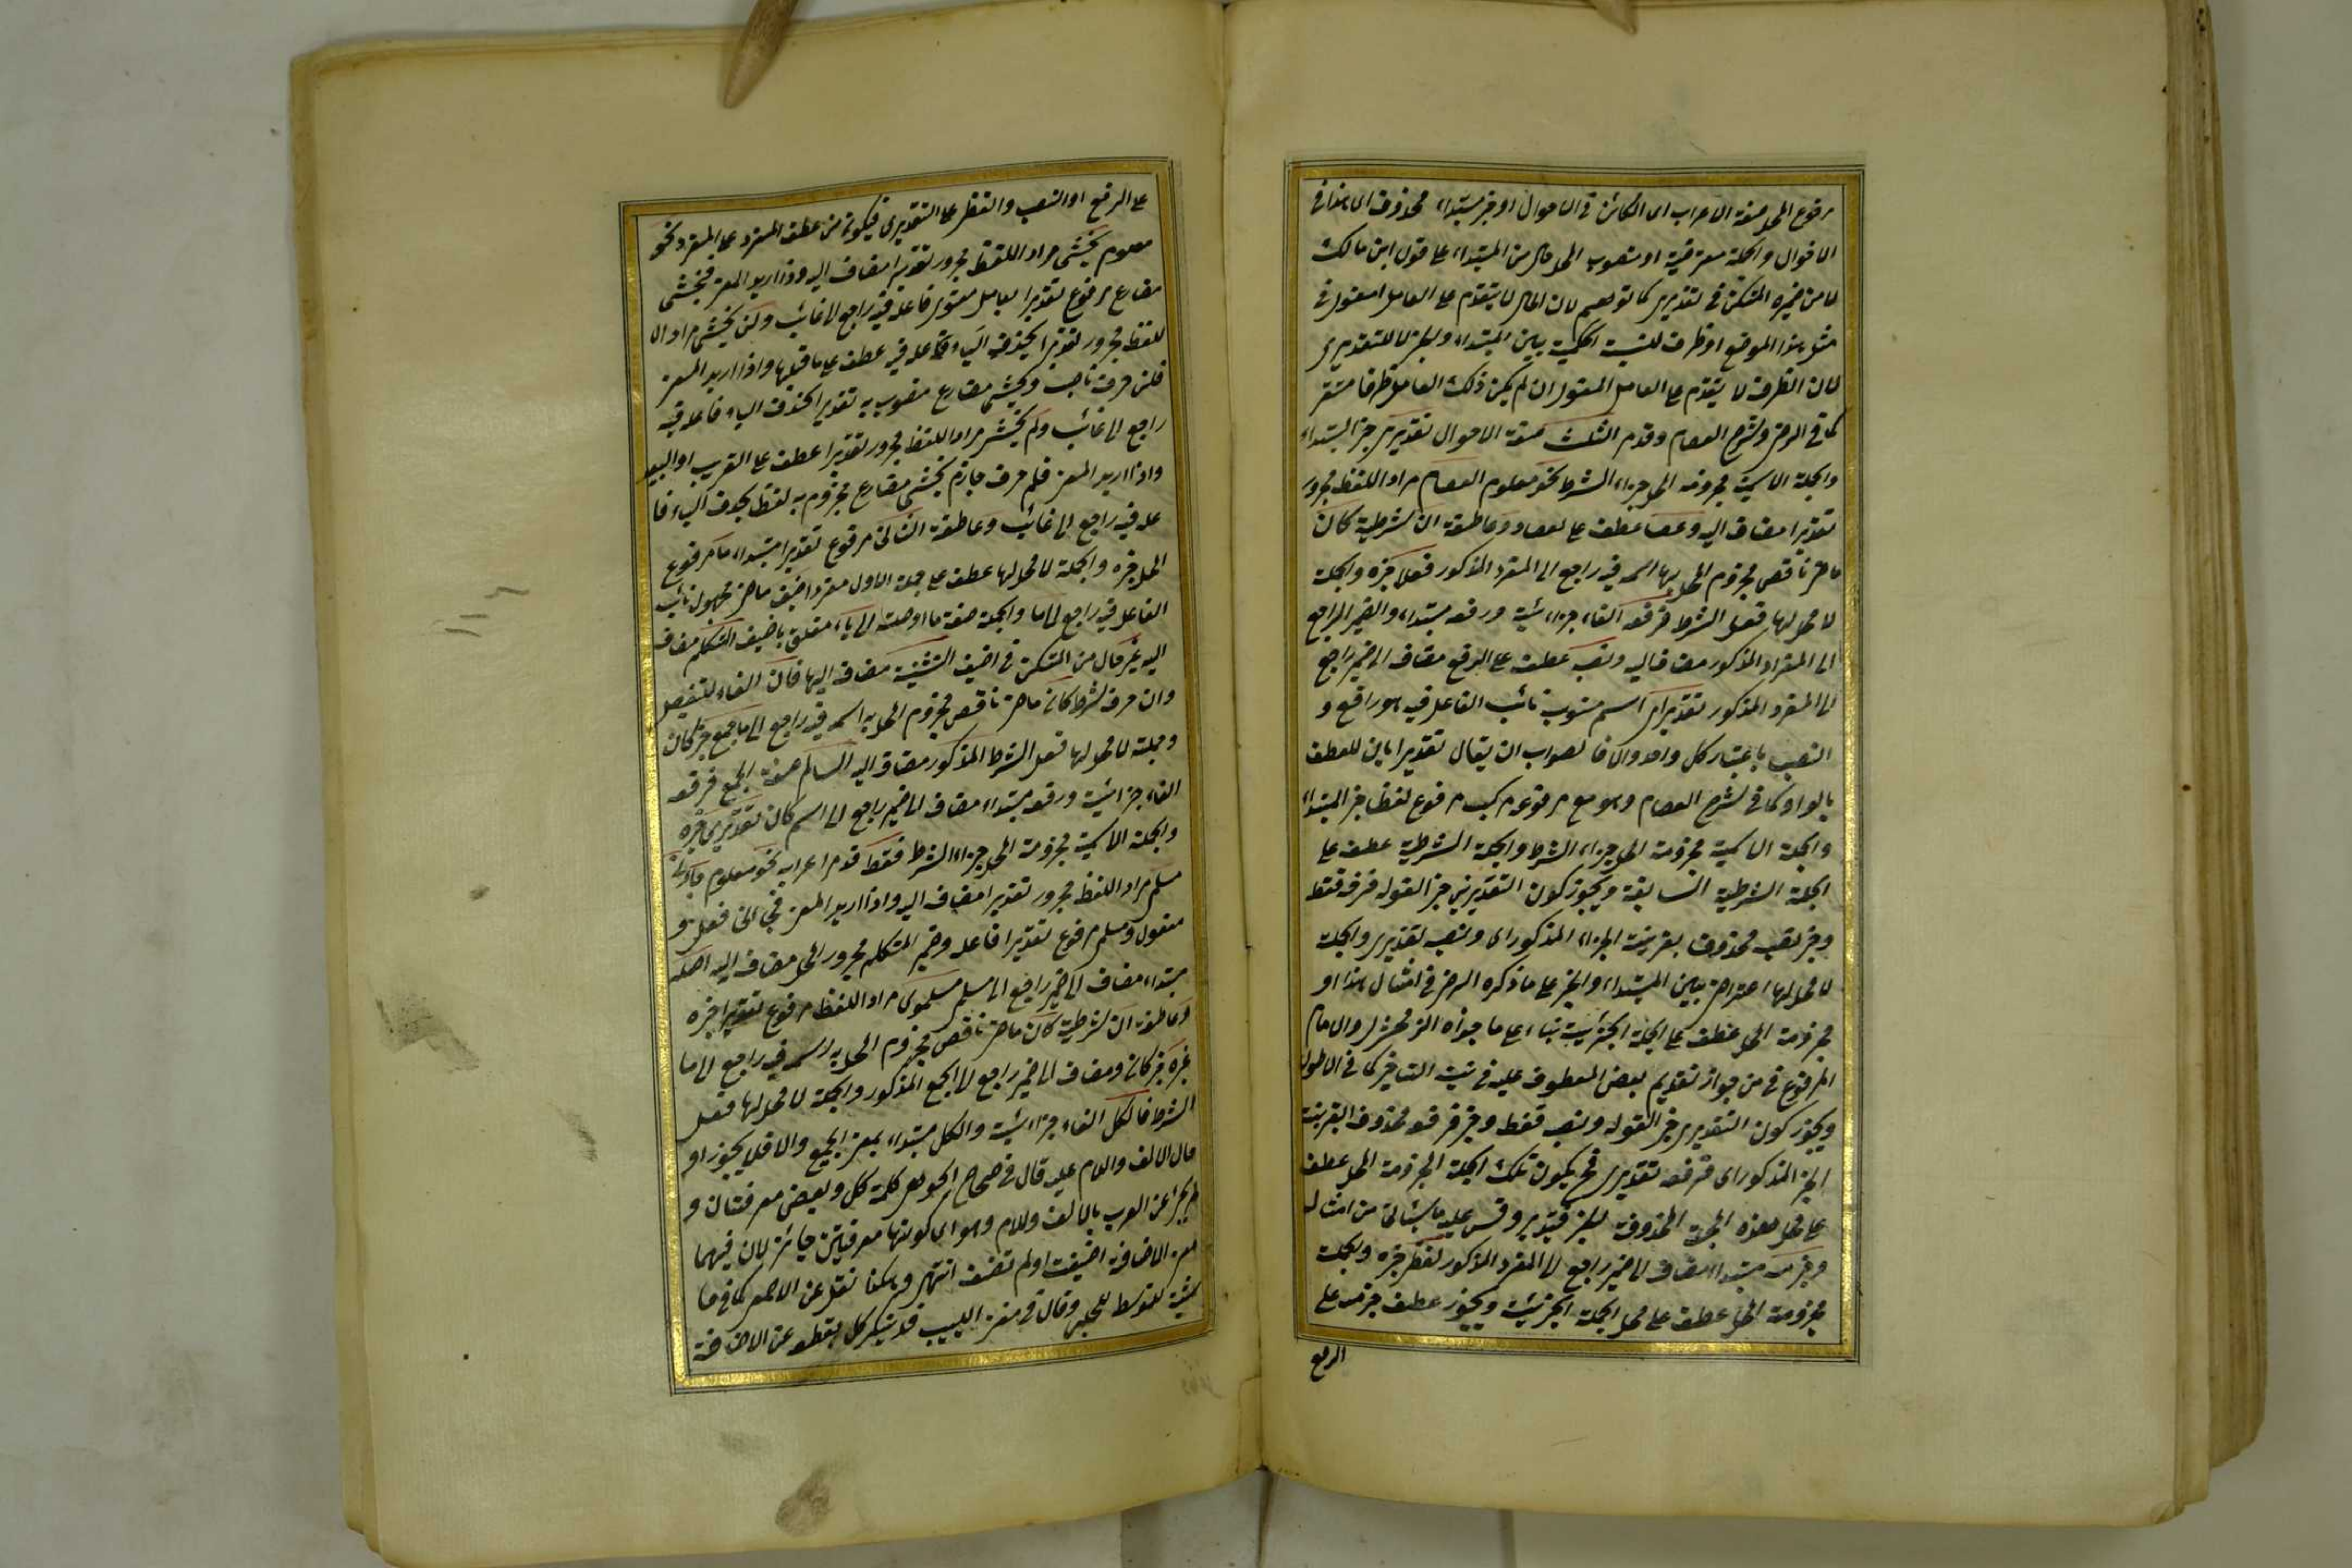 مرفوع المحل صفة الاعراب اى الكائن فى الاحوال او خبر مبتداء محذوف اى هذا فى
الاحوال والجملة معترضة او منصوب المحل حال من المبتداء على قول ابن مالك
لا من ضميره المستكن فى تقديرى كما توهم لان الحال لا يتقدم على العامل المعنوى فى
مثل هذا الموقع او ظرف للنسبة الحكمية بين المبتداء والخبر لا للتقديرى
لان الظرف لا يتقدم على العامل المعنوى ان لم يكن ذلك العامل ظرفا مستقر
كما فى الرضى وشرح العصام وقدم الثلث صفة الاحوال تقديرى خبر المبتداء
والجملة الاسمية مجزومة المحل جزاء الشرط نحو معلوم العصا مراد اللفظ مجرور
تقديرا مضاف اليه وعصا عطف على العصا وو عاطفة ان شرطية كان
ماض ناقص مجزوم المحل بها اسمه فيه راجع الى المفرد المذكور فعلا خبره والجملة
لا محل لها فعل الشرط فرفعه الفاء جزائية ورفعه مبتداء والضمير الراجع
الى المفرد المذكور مضاف اليه ونصبه عطف على الرفع مضاف الى ضمير راجع
الى المفرد المذكور تقديرى اسم منسوب نائب الفاعل فيه هو راقع و
النصب باعتبار كل واحد والا فالصواب ان يقال تقديرايان للعطف
بالواو كما فى شرح العصام وهو مع مرفوعه مركب مرفوع لفظا خبر المبتداء
والجملة الاسمية مجزومة المحل جزاء الشرط والجملة الشرطية عطف على
الجملة الشرطية السابقة ويجوز كون التقديرى خبرا لقوله فرفعه فقط
وخبر نصبه محذوف بقرينة الجزاء المذكور اى ونصبه تقديرى والجملة
لا محل لها اعتراض بين المبتداء والخبر على ما ذكره الرضى فى امثال هذا او
مجزومة المحل عطف على الجملة الجزائية بناء على ما جوزه الزمخشرى والامام
المرزوقى من جواز تقديم بعض المعطوف عليه فى نية التاخير كما فى الاطول
ويجوز كون التقديرى خبرا لقوله ونصبه فقط وخبر فرفعه محذوف بقرينة
الخبر المذكور اى فرفعه تقديرى فح يكون تلك الجملة المجزومة المحل عطف
على محل هذه الجملة المحذوفة الخبر فتدبر وقس عليه ما سياتى من امثاله
وجزمه مبتداء مضاف الى ضمير راجع الى المفرد المذكور لفظى خبره والجملة
مجزومة المحل عطف على محل الجملة الجزائية ويجوز عطف جزمه على
الرفع
على الرفع او النصب واللفظى على التقديرى فيكون من عطف المفرد على المفرد نحو
معلوم يخشى مراد اللفظ مجرور تقديرا مضاف اليه واذا اريد المعنى فيخشى
مضارع مرفوع تقديرا بعامل معنوى فاعله فيه راجع الى غائب ولن يخشى مراد ال
لفظ مجرور تقديرا عطف على ما قبلها واذا اريد المعنى
فلن حرف ناصب ويخشى مضارع منصوب به تقديرا فاعله فيه
راجع الى غائب ولم يخش مراد اللفظ مجرور تقديرا عطف على القريب او البعيد
واذا اريد المعنى فلم حرف جازم يخش مضارع مجزوم به لفظا بحذف الياء فا
عله فيه راجع الى غائب وعاطفة الثانى مرفوع تقديرا مبتداء ما مرفوع
المحل خبره والجملة لا محل لها عطف على جملة الاول مفردا اضيف ماض مجهول نائب
الفاعل فيه راجع الى ما والجملة صفة ما او صلته الى ياء متعلق باضيف المتكلم مضاف
اليه غير حال من المستكن فى اضيف التثنية مضاف اليها فان الفاء للتفصيل
وان حرف شرط كان ماض ناقص مجزوم المحل به اسمه فيه راجع الى ما جمع خبر كان
وجملته لا محل لها فعل الشرط المذكور مضاف اليه السالم صفة الجمع فرفعه
الفاء جزائية ورفعه مبتداء مضاف الى ضمير راجع الى اسم كان تقديرى خبره
والجملة الاسمية مجزومة المحل جزاء الشرط فقط قدم اعرابه نحو معلوم جاءنى
مسلمى مراد اللفظ مجرور تقديرا مضاف اليه واذا اريد المعنى فجاءنى فعل و
مفعول ومسلمى مرفوع تقديرا فاعله وضمير المتكلم مجرور المحل مضاف اليه اصله
مبتداء مضاف الى ضمير راجع الى مسلمى مسلموى مراد اللفظ مرفوع تقديرا خبره
وعاطفة ان شرطية كان ماض ناقص مجزوم المحل به اسمه فيه راجع الى ما
غيره خبر كان ومضاف الى ضمير راجع الى الجمع المذكور والجملة لا محل لها فعل
الشرط فالكل الفاء جزائية والكل مبتداء بمعنى الجميع والا فلا يجوز اد
خال الالف واللام عليه قال فى صحاح الجوهرى كلمة كل وبعض معرفتان و
لم يجئ عن العرب بالالف واللام وهو اى كونهما معرفتين جائز لان فيهما
معنى الاضافة اضيفت او لم تضف انتهى وهكذا نقل عن الاصمعى كما فى حا
شية المتوسط للجلبى وقال فى مغنى اللبيب قد يذكر كل بقطعه عن الاضافة